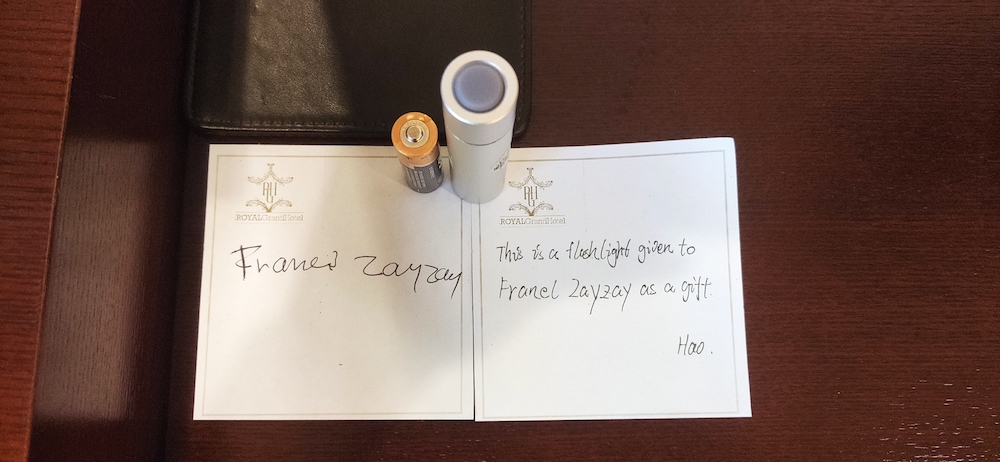 RHG
ROYALGrandHotel
Zayzay
RHG
ROYALGrandHotel
This is a flashlight given to
Franel Zayzay as a gift.
Hao.